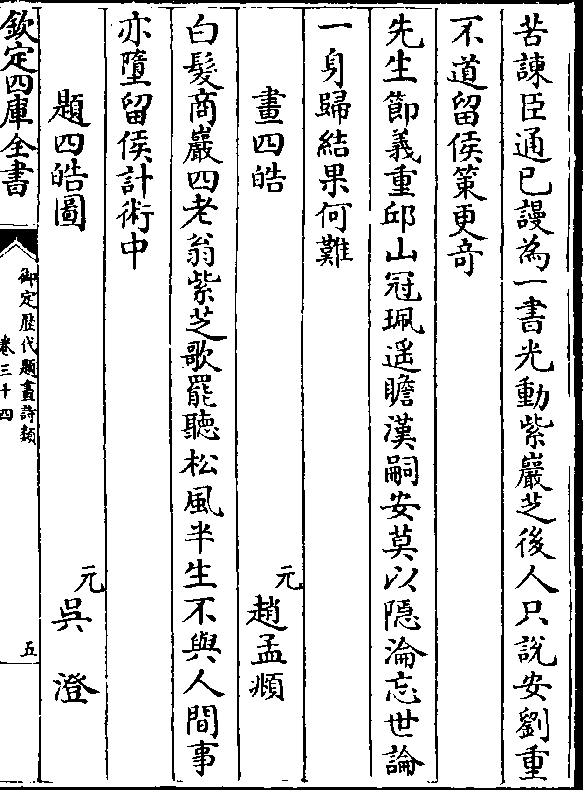 苦諫臣通已謾為一書光動紫巖芝後人只說安劉重
不道留侯策更竒
先生節義重邱山冠珮遥瞻漢嗣安莫以隠淪忘世論
一身歸結果何難
畫四皓 元趙孟頫
白髮商巖四老翁紫芝歌罷聽松風半生不與人間事
亦墮留侯計術中
題四皓圖 元吳澄
欽定四庫全書
御定歷代題畫詩類
卷三十四
五